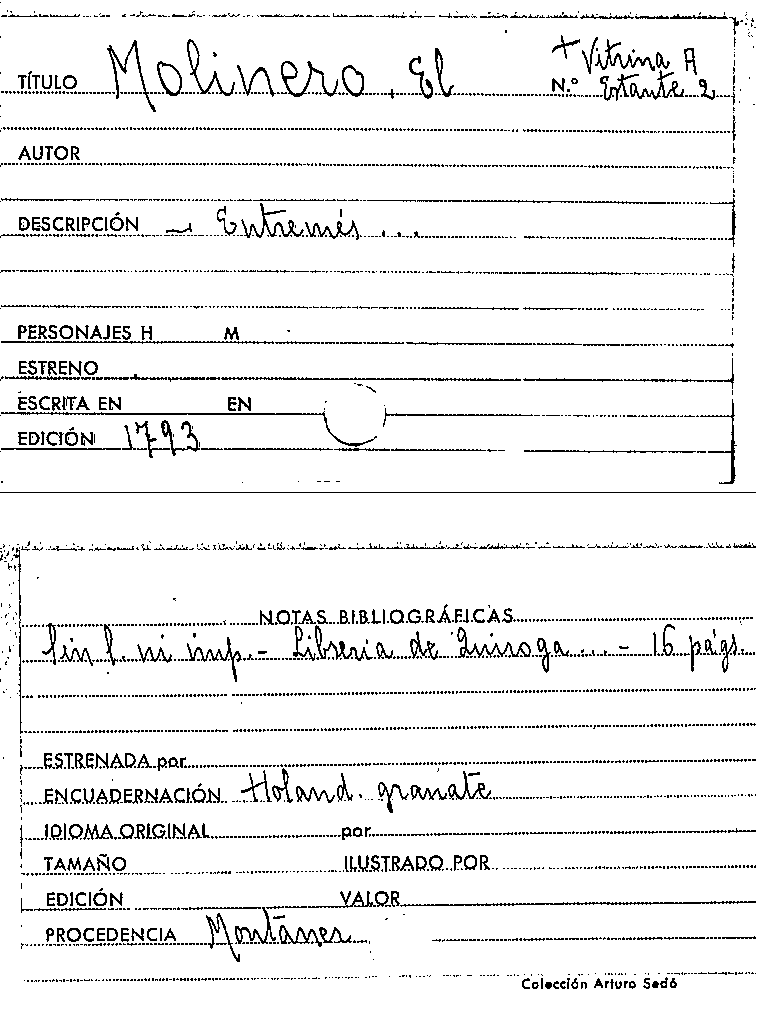 + Vitrina A
TÍTULO Molinero, El N.º Estante 2
AUTOR
DESCRIPCIÓN — Entremés ...
PERSONAJES H M
ESTRENO
ESCRITA EN EN
EDICIÓN 1793
NOTAS BIBLIOGRÁFICAS
Sin l. ni imp. - Librería de Quiroga ... - 16 págs.
ESTRENADA por
ENCUADERNACIÓN Holand. granate
IDIOMA ORIGINAL por
TAMAÑO ILUSTRADO POR
EDICIÓN VALOR
PROCEDENCIA Montaner
Colección Arturo Sedó